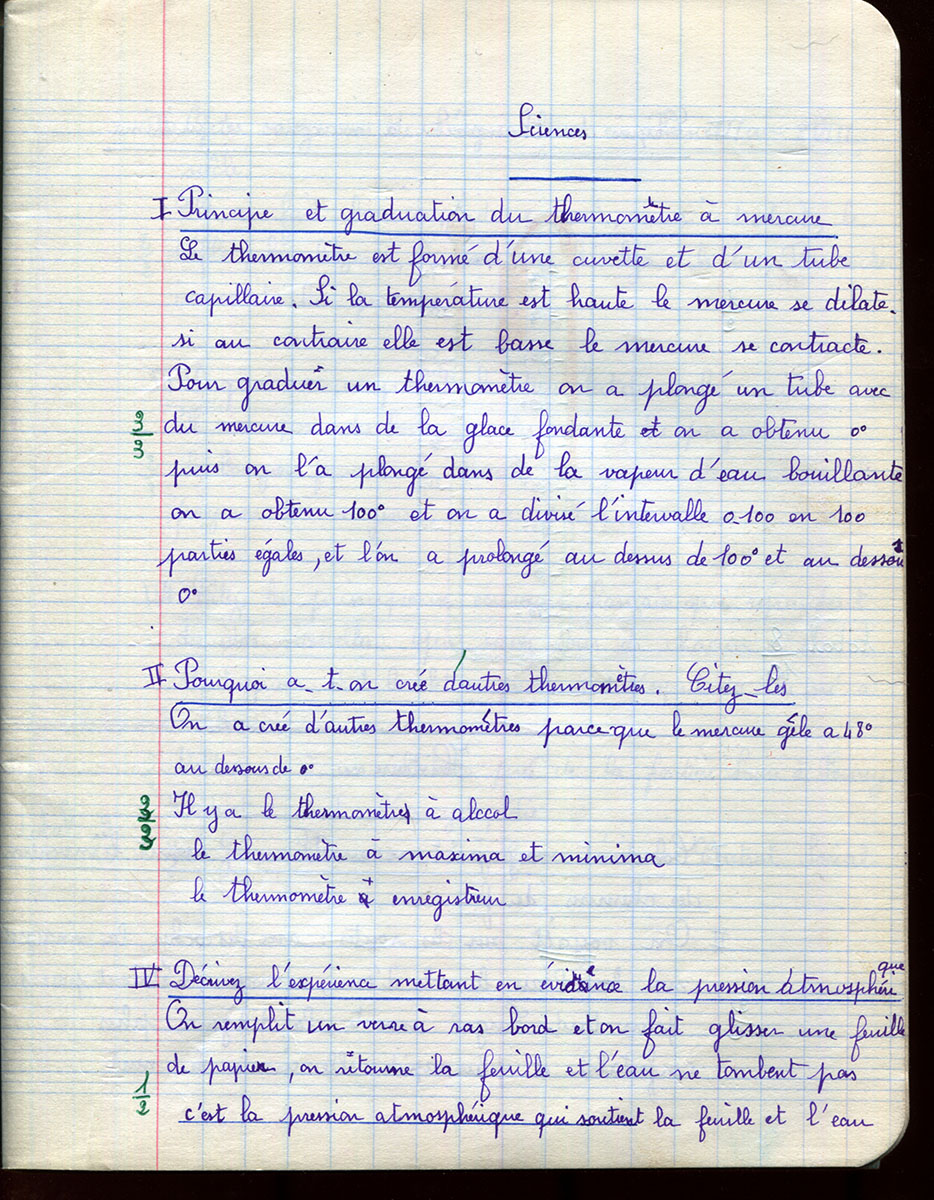 Sciences
I Principe et graduation du thermomètre à mercure
Le thermomètre est formé d'une cuvette et d'un tube
capillaire. Si la température est haute le mercure se dilate.
si au contraire elle est basse le mercure se contracte.
Pour graduer un thermomètre on a plongé un tube avec
3/3 du mercure dans de la glace fondante et on a obtenu 0°
puis on l'a plongé dans de la vapeur d'eau bouillante
on a obtenu 100° et on a divisé l'intervalle 0-100 en 100
parties égales, et l'on a prolongé au dessus de 100° et au dessous
0°
II Pourquoi a-t-on créé d'autres thermomètres. Citez-les
On a créé d'autres thermomètres parce que le mercure gèle a 48°
au dessous de 0°
Il y a le thermomètre à alccol
le thermomètre à maxima et minima
le thermomètre enregistreur
IV Décrivez l'expérience mettant en évidence la pression atmosphérique
On remplit un verre à ras bord et on fait glisser une feuille
de papier, on retourne la feuille et l'eau ne tombent pas
1/2 c'est la pression atmosphérique qui soutient la feuille et l'eau